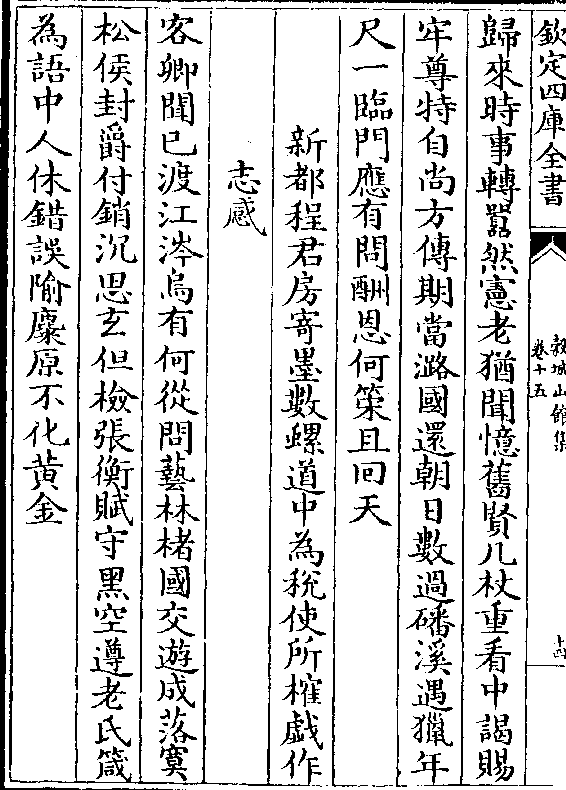 欽定四庫全書
穀城山館集
卷十五
十四
歸來時事轉囂然憲老猶聞憶舊賢几杖重看中謁賜
牢尊特自尚方傳期當潞國還朝日數過磻溪遇獵年
尺一臨門應有問酬恩何策且回天
新都程君房寄墨數螺道中為稅使所榷戯作
志感
客卿聞已渡江涔烏有何從問藝林楮國交遊成落寞
松侯封爵付銷沉思玄但檢張衡賦守黑空遵老氏箴
為語中人休錯誤隃麋原不化黄金